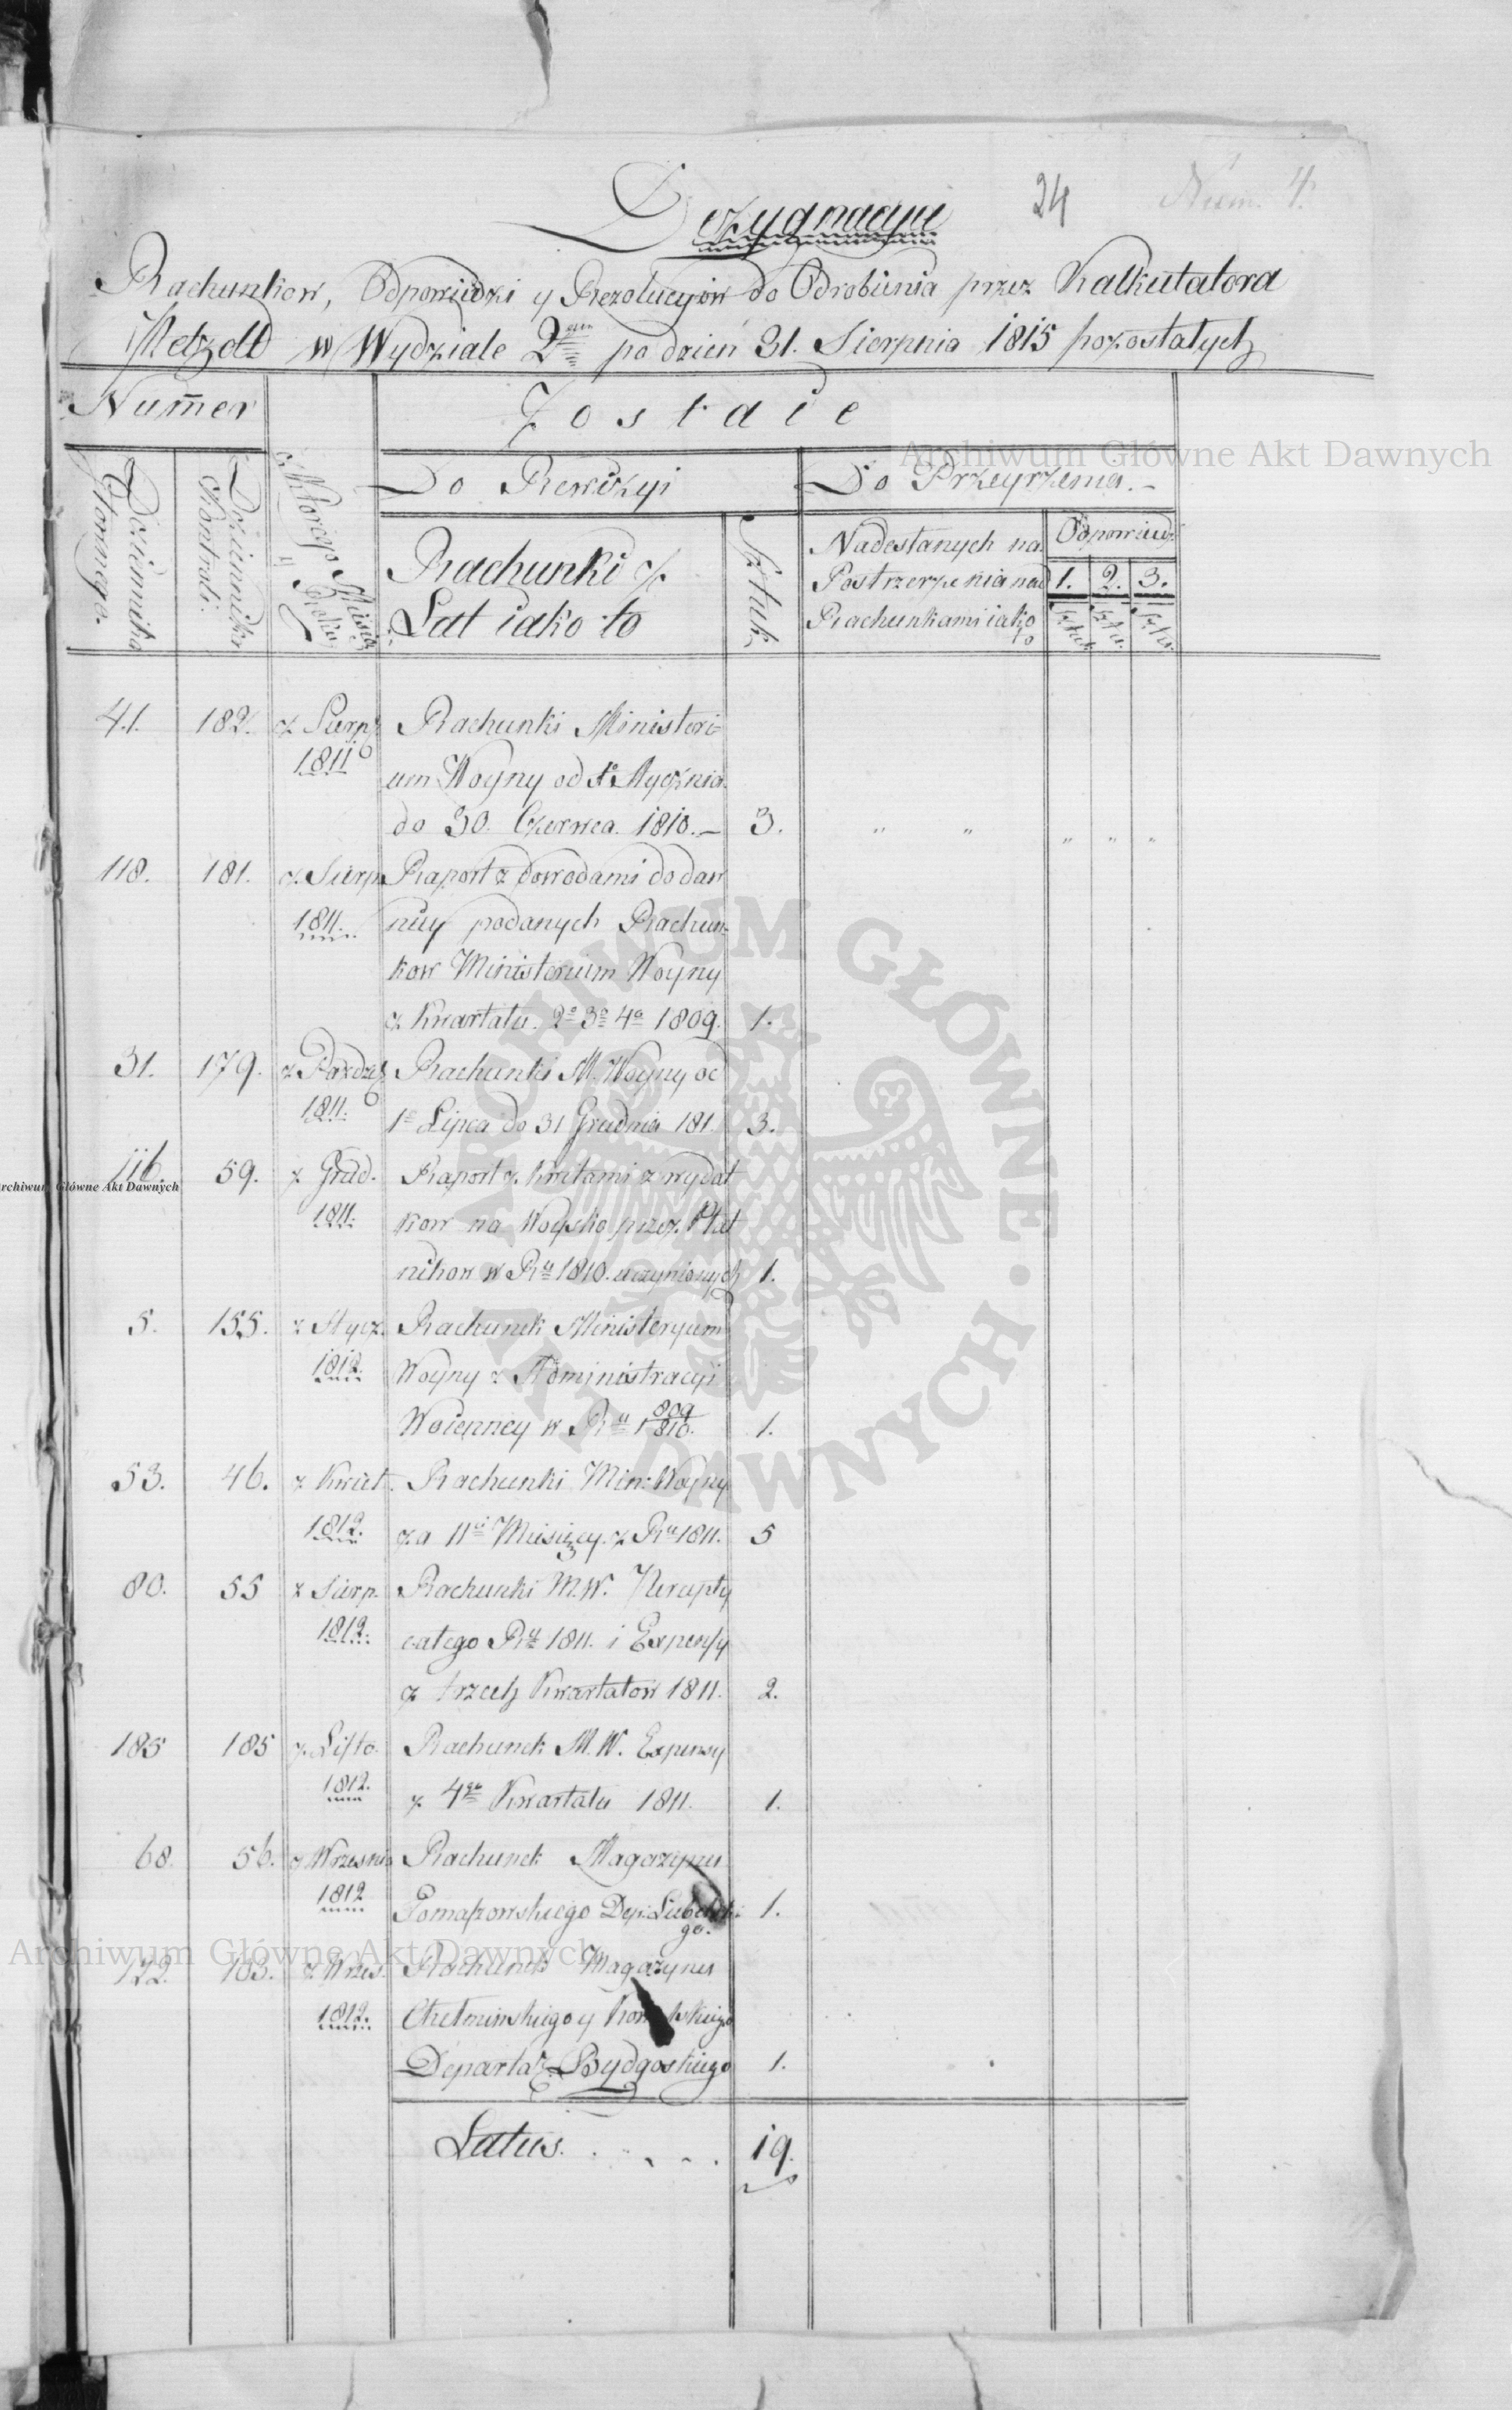 24 Num. 4.
Dezygnacyia
Rachunkow, Odpowiedzi y Rezolucyiow do Odrobienia przez Kalkulatora
Petzold w Wydziale 2gim po dzień 31. Sierpnia 1815 pozostałych
Numer
Zostaie
Do Rewizyi
Do Przeyrzenia.
Dziennika Głownego.
Dziennika Kontroli.
z Ktorego Miesiąca y Roku
Rachunki z
Lat iako to
Sztuk
Nadesłanych na
Postrzeżenia nad
Rachunkami iako
to
Odpowiedzi
1. 2. 3.
Sztuk Sztu. Sztu.
41. 182. z Sierp. Rachunki Ministeri
1811 um Woyny od 1o Stycznia
do 30. Czerwca. 1810. 3. " " " " "
118. 181. z Sierp. Raport z dowodami do daw
1811. niey podanych Rachun-
kow Ministerium Woyny
z Kwartału. 2o 3o 4o 1809. 1.
31. 179. z Pazdz. Rachunki M. Woyny od
1811. 1o Lipca do 31 Grudnia 181 3.
116. 59. z Grud. Raport z Kwitami z wydat
1811. kow na Woysko przez Płat
nikow w Ru 1810. uczynionych 1.
5. 155. z Stycz. Rachunek Ministeryum
1812. Woyny z Administracyi
Woienney w Ru 1 809/810. 1.
53. 46. z Kwiet. Rachunki Min: Woyny
1812. za 11ci Miesięcy. z Ru 1811. 5
80. 55 z Sierp. Rachunki M.W. Recepty
1812. całego Ru 1811. i Expensy
z trzech Kwartałow 1811. 2.
185 185 z Listo. Rachunek M.W. Expensy
1812. z 4go Kwartału 1811. 1.
68. 56. z Wrzesnia Rachunek Magazynu
1812 Tomaszowskiego Dep: Lubelski
go. 1.
122. 103. z Wrzes. Rachunek Magazynu
1812. Chełminskiego y
Departa: Bydgoskiego 1.
Latus. . . . . 19.
Archiwum Główne Akt Dawnych
Archiwum Główne Akt Dawnych
Archiwum Główne Akt Dawnych
ARCHIWUM GŁÓWNE · AKT DAWNYCH ·